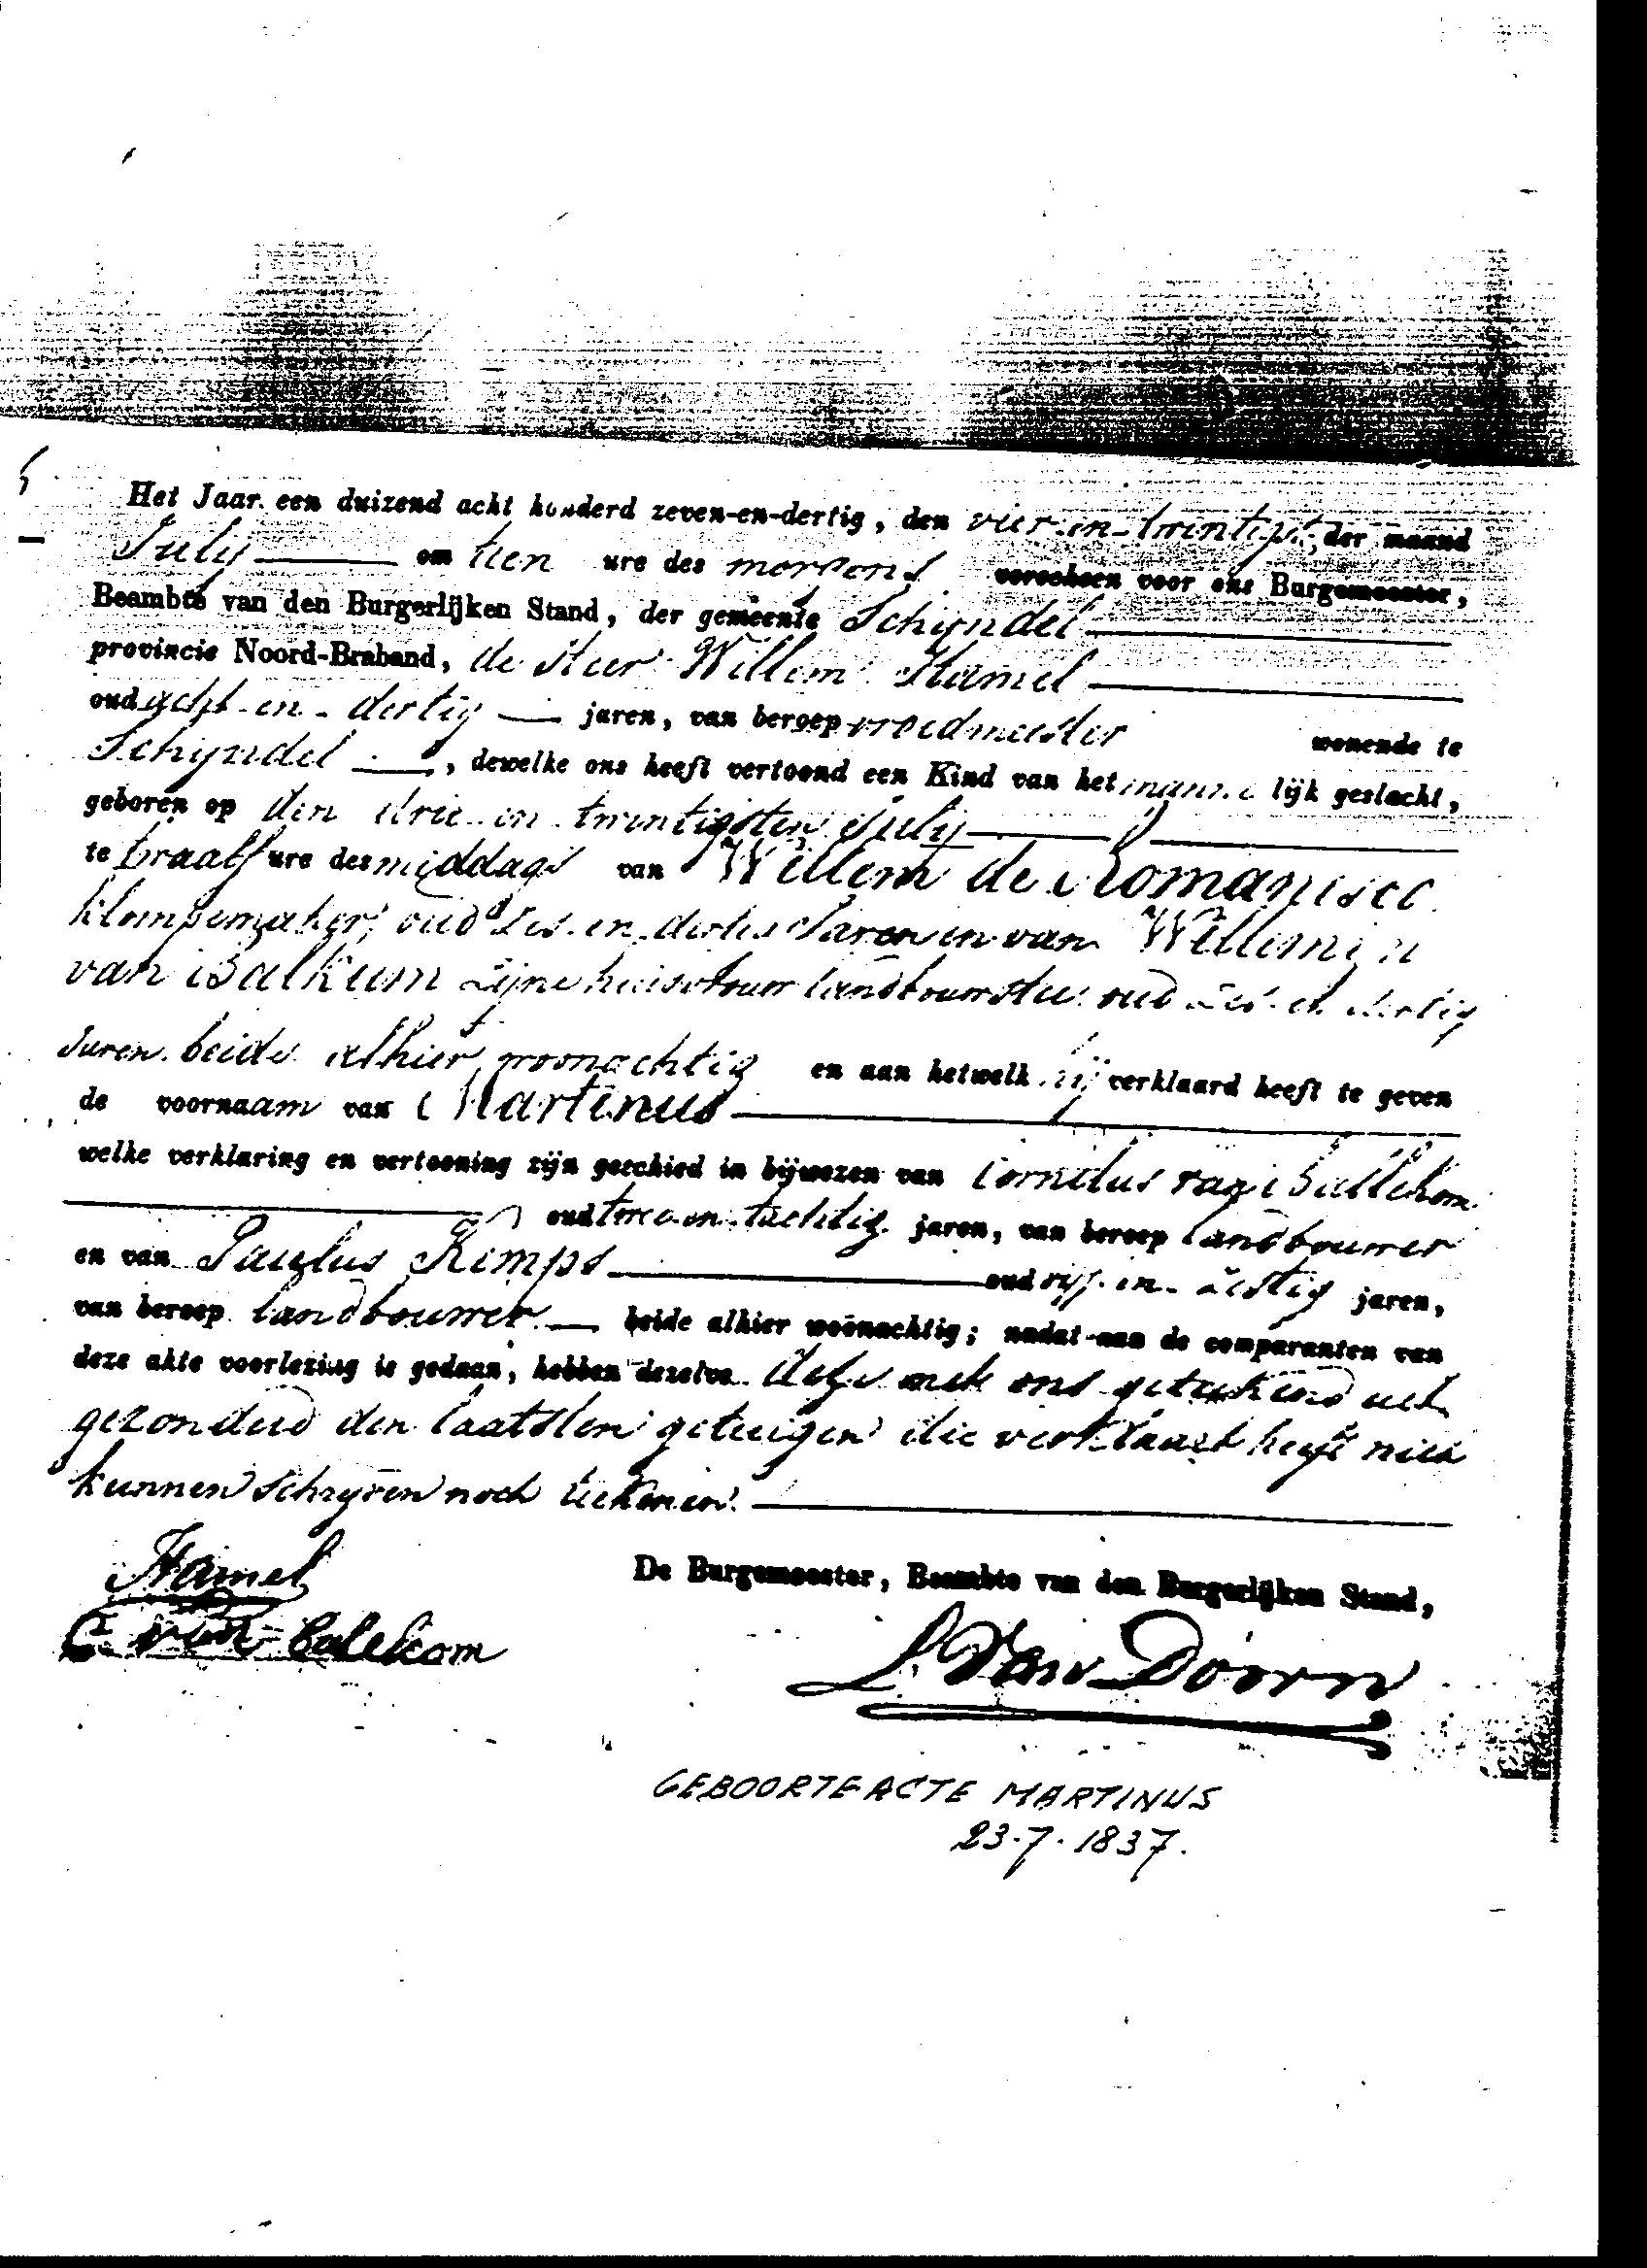 Het Jaar een duizend acht honderd zeven-en-dertig, den vier-en-twintigst, der maand
July om tien ure des morgens verscheen voor ons Burgemeester,
Beambte van den Burgerlijken Stand, der gemeente Schyndel
provincie Noord-Braband, de Heer Willem Hamel
oud acht-en-dertig jaren, van beroep vroedmeester wonende te
Schyndel, dewelke ons heeft vertoond een Kind van het manne lijk geslacht,
geboren op den drie-en-twintigsten July
te twaalf ure des middags van Willem de Romanisco
klompemaker, oud zes-en-dertig Jaren en van Willemyn
van Balkum zyne huisvrouw landbouwster oud zes-en-dertig
Jaren beide alhier woonachtig en aan hetwelk hij verklaard heeft te geven
de voornaam van Martinus
welke verklaring en vertooning zijn geschied in bijwezen van Cornelus van Ballekom
oud twee-en-tachtig jaren, van beroep landbouwer
en van Paulus Kemps oud vijf-en-zestig jaren,
van beroep landbouwer beide alhier woonachtig; nadat aan de comparanten van
deze akte voorlezing is gedaan, hebben dezelve deze met ons geteekend uit
gezonderd den laatsten getuigen die verklaart heeft niet
kunnen schryven noch teekenen.
Hamel
De Burgemeester, Beambte van den Burgerlijken Stand,
C van balekom
L. Van Doorn
GEBOORTEACTE MARTINUS
23.7.1837.